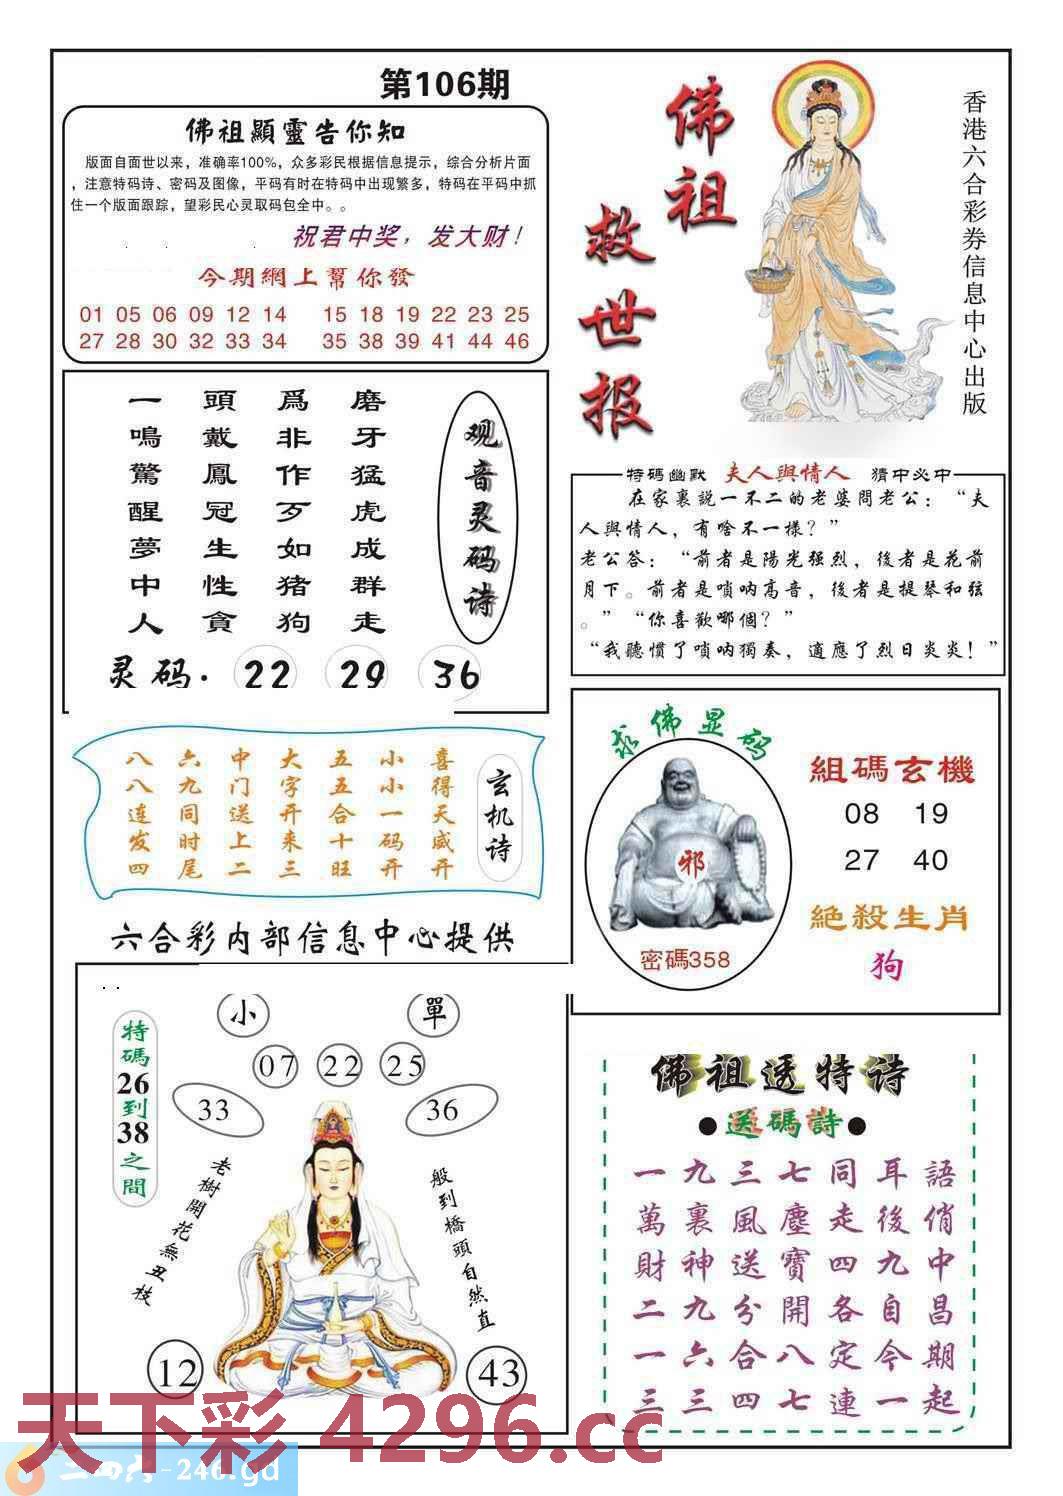 第106期
佛祖顯靈告你知
版面自面世以来，准确率100%，众多彩民根据信息提示，综合分析片面
，注意特码诗、密码及图像，平码有时在特码中出现繁多，特码在平码中抓
住一个版面跟踪，望彩民心灵取码包全中。。
祝君中奖，发大财！
今期網上幫你發
01 05 06 09 12 14 15 18 19 22 23 25
27 28 30 32 33 34 35 38 39 41 44 46
佛祖
救世报
香港六合彩券信息中心出版
观音灵码诗
磨牙猛虎成群走
爲非作歹如猪狗
頭戴鳳冠生性貪
一鳴驚醒夢中人
灵码. 22 29 36
特碼幽默 夫人與情人 猜中必中
在家裏説一不二的老婆問老公：“夫
人與情人，有啥不一樣？”
老公答：“前者是陽光强烈，後者是花前
月下。前者是嗩呐高音，後者是提琴和弦
。”“你喜歡哪個？”
“我聽慣了嗩呐獨奏，適應了烈日炎炎！”
玄机诗
喜得天威开
小小一码开
五五合十旺
大字开来三
中门送上二
六九同时尾
八八连发四
求佛显码
邪
密碼358
組碼玄機
08 19
27 40
絕殺生肖
狗
六合彩内部信息中心提供
小 單
07 22 25
33 36
特碼26到38之間
老樹開花無丑枝
般到橋頭自然直
12 43
佛祖透特诗
●送碼詩●
一九三七同耳語
萬裏風塵走後俏
財神送寶四九中
二九分開各自昌
一六合八定今期
三三四七連一起
天下彩 4296.cc
二四六-246.gd